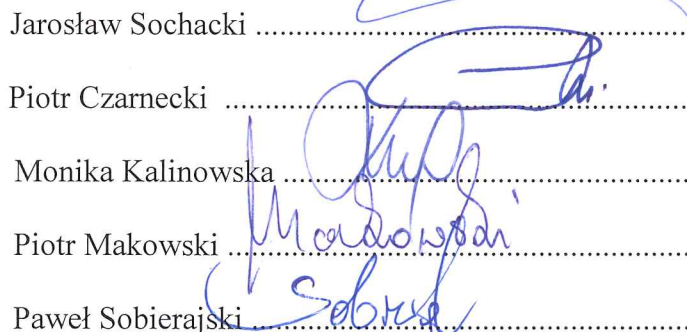 Jarosław Sochacki ................................................
Piotr Czarnecki ................................................
Monika Kalinowska ................................................
Piotr Makowski ................................................
Makowski
Paweł Sobierajski ................................................